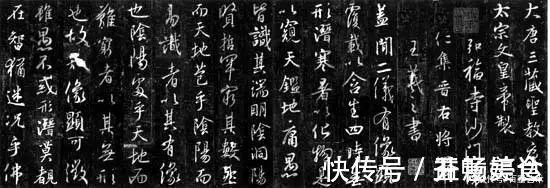 大唐三藏聖教序
太宗文皇帝製
弘福寺沙門
仁集晉右將
王羲之書
蓋聞二儀有像顯
覆載以含生四時
形潛寒暑以化物是
以窺天鑑地庸愚
皆識其端明陰洞陽
賢哲罕窮其數然
而天地苞乎陰陽而
易識者以其有像
也陰陽處乎天地而
難窮者以其無形
也故知像顯可徵
雖愚不惑形潛莫覩
在智猶迷況乎佛
快传号 /